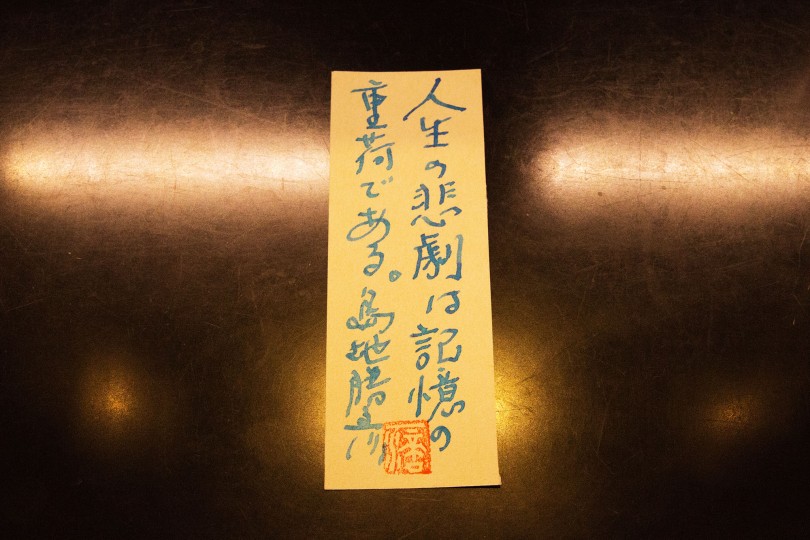 人生の悲劇は記憶の
重荷である。島地勝彦